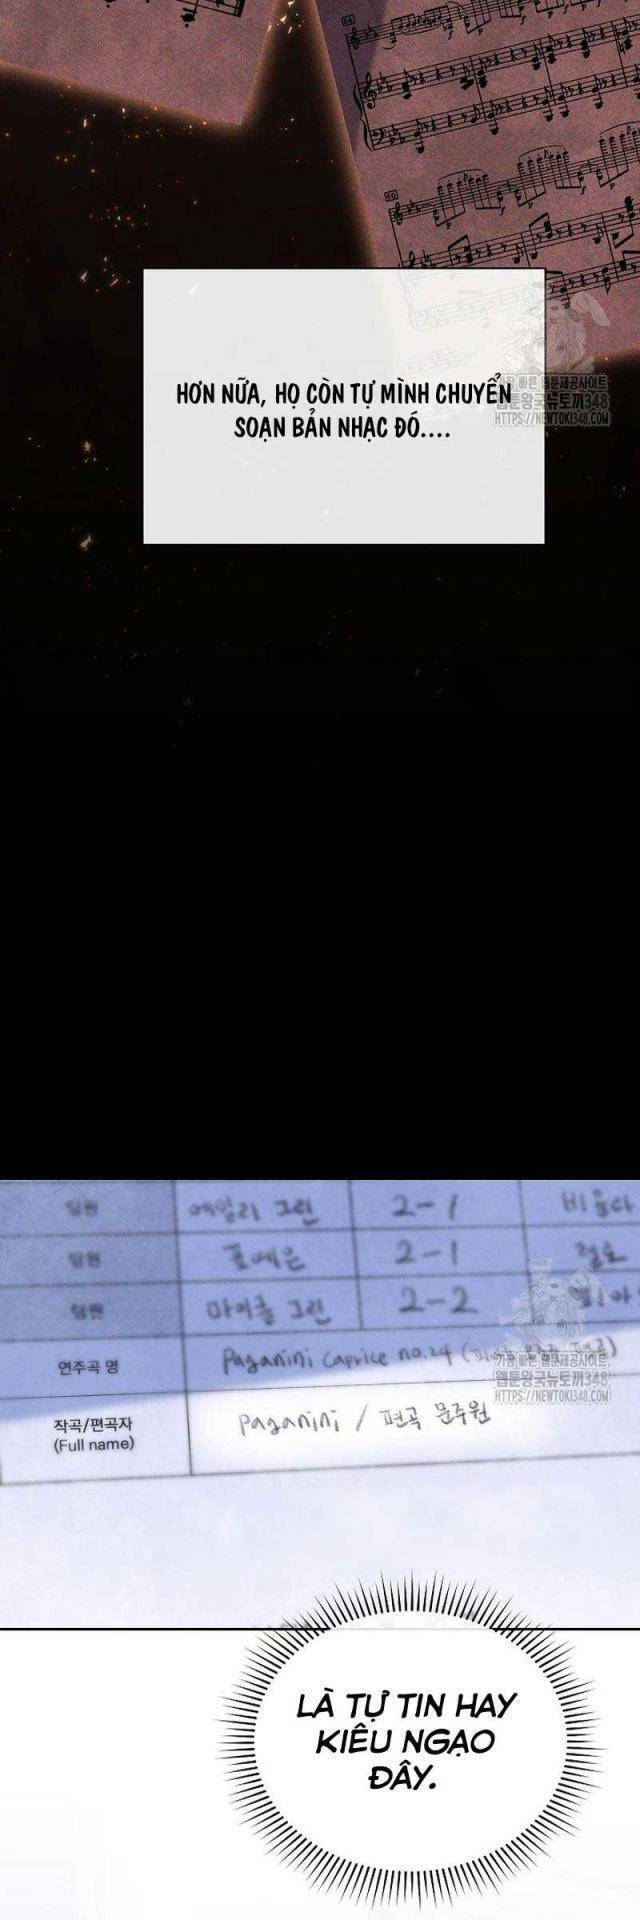 HƠN NỮA, HỌ CÒN TỰ MÌNH CHUYỂN
SOẠN BẢN NHẠC ĐÓ....
가장 빠른 웹툰제공사이트
웹툰왕국뉴토끼348
HTTPS://NEWTOKI348
팀원 에밀리 그린 2-1 비올라
팀원 2-1 첼로
팀원 마이클 그린 2-2
연주곡 명 Paganini Caprice no.24
작곡/편곡자 Paganini / 편곡 문주원
(Full name)
가장 빠른 웹툰제공사이트
웹툰왕국뉴토끼348
HTTPS://NEWTOKI348
LÀ TỰ TIN HAY
KIÊU NGẠO
ĐÂY.